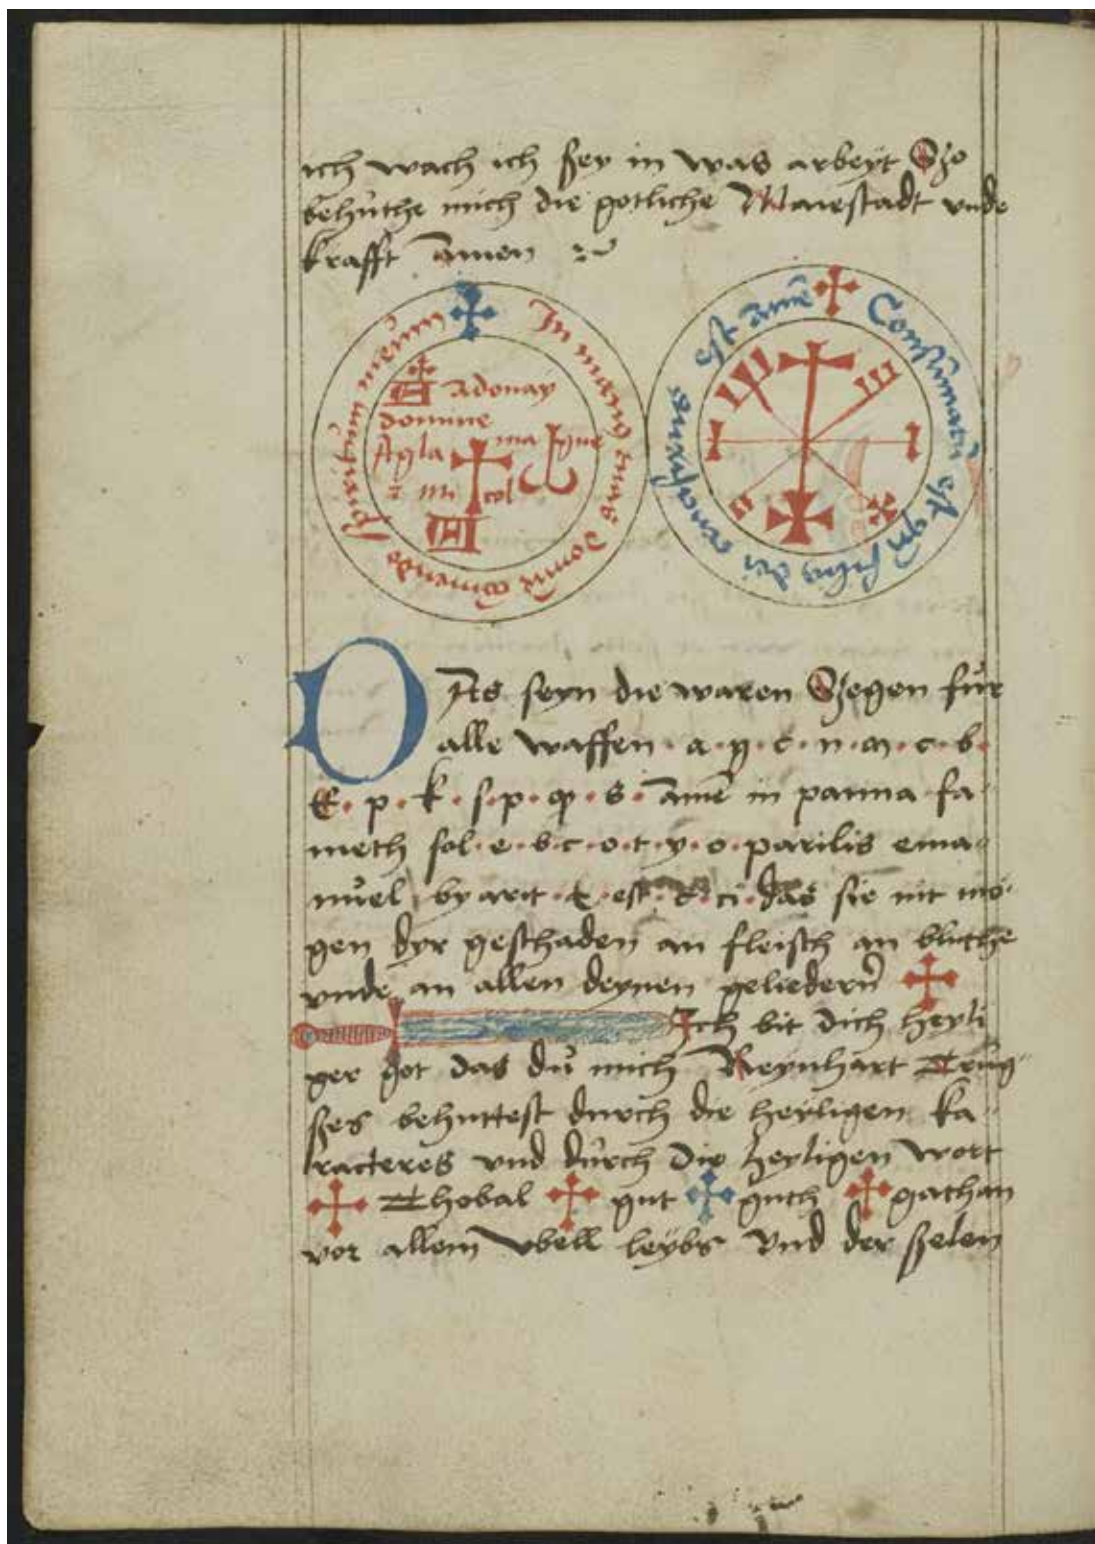 ich wach ich sey in was arbeyt Szo
behuthe mich die gotliche Maiestadt unde
krafft amen
In manus tuas domine spiritum meum
adonay
domine
Agla
Consumatum est filius dei est ame
DAs seyn die waren Szegen fur
alle waffen · a · g · c · n · m · c · b ·
E · p · k · s · p · q · s · ame in panna fa
meth sol · e · b · c · o · t · y · o · parilis ema
nuel byarit · t · est · ci · das sie nit mo
gen dyr geschaden an fleisch an bluthe
vnde an allen deynen geliedern
Ich bit dich heyli
ger got das du mich Reynhart Trug
szes behuttest durch die heyligen ka
racteres vnd durch die heyligen wort
Thobal gut guth gathan
vor allem vbell leybs vnd der szelen